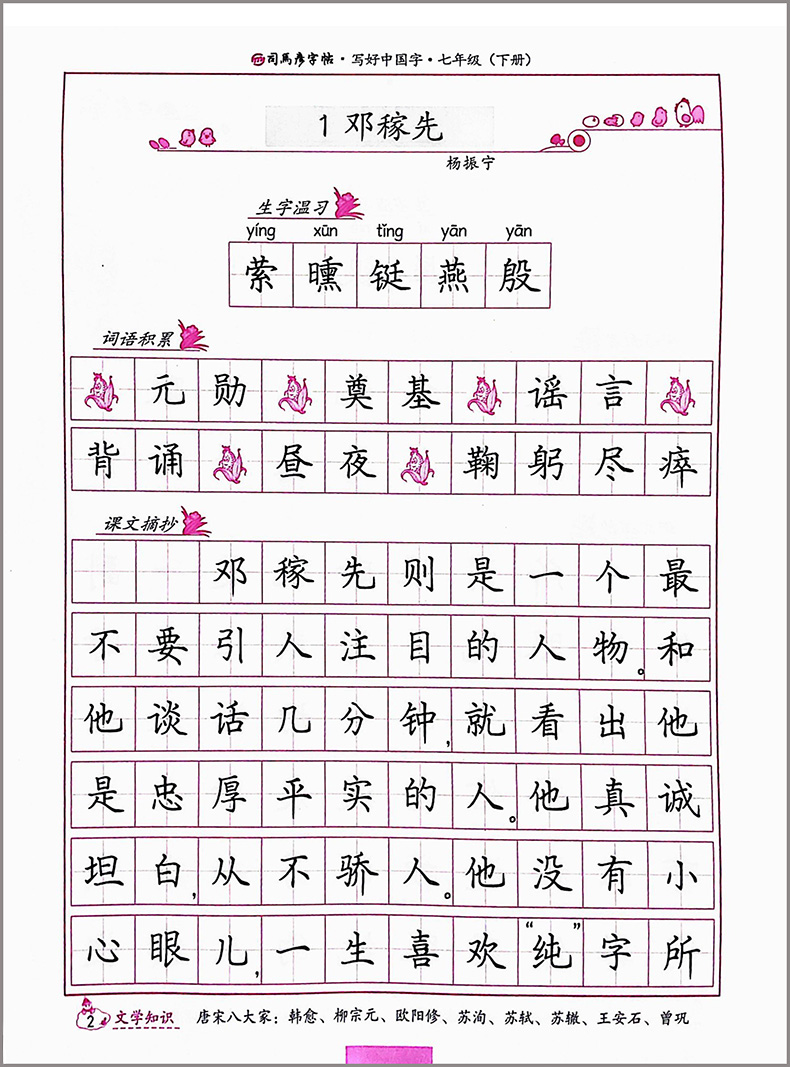 司马彦字帖·写好中国字·七年级（下册）
1 邓稼先
杨振宁
生字温习
yíng xūn tǐng yān yān
萦 曛 铤 燕 殷
词语积累
元勋 奠基 谣言
背诵 昼夜 鞠躬尽瘁
课文摘抄
邓稼先则是一个最
不要引人注目的人物。和
他谈话几分钟，就看出他
是忠厚平实的人。他真诚
坦白，从不骄人。他没有小
心眼儿，一生喜欢“纯”字所
2 文学知识 唐宋八大家：韩愈、柳宗元、欧阳修、苏洵、苏轼、苏辙、王安石、曾巩